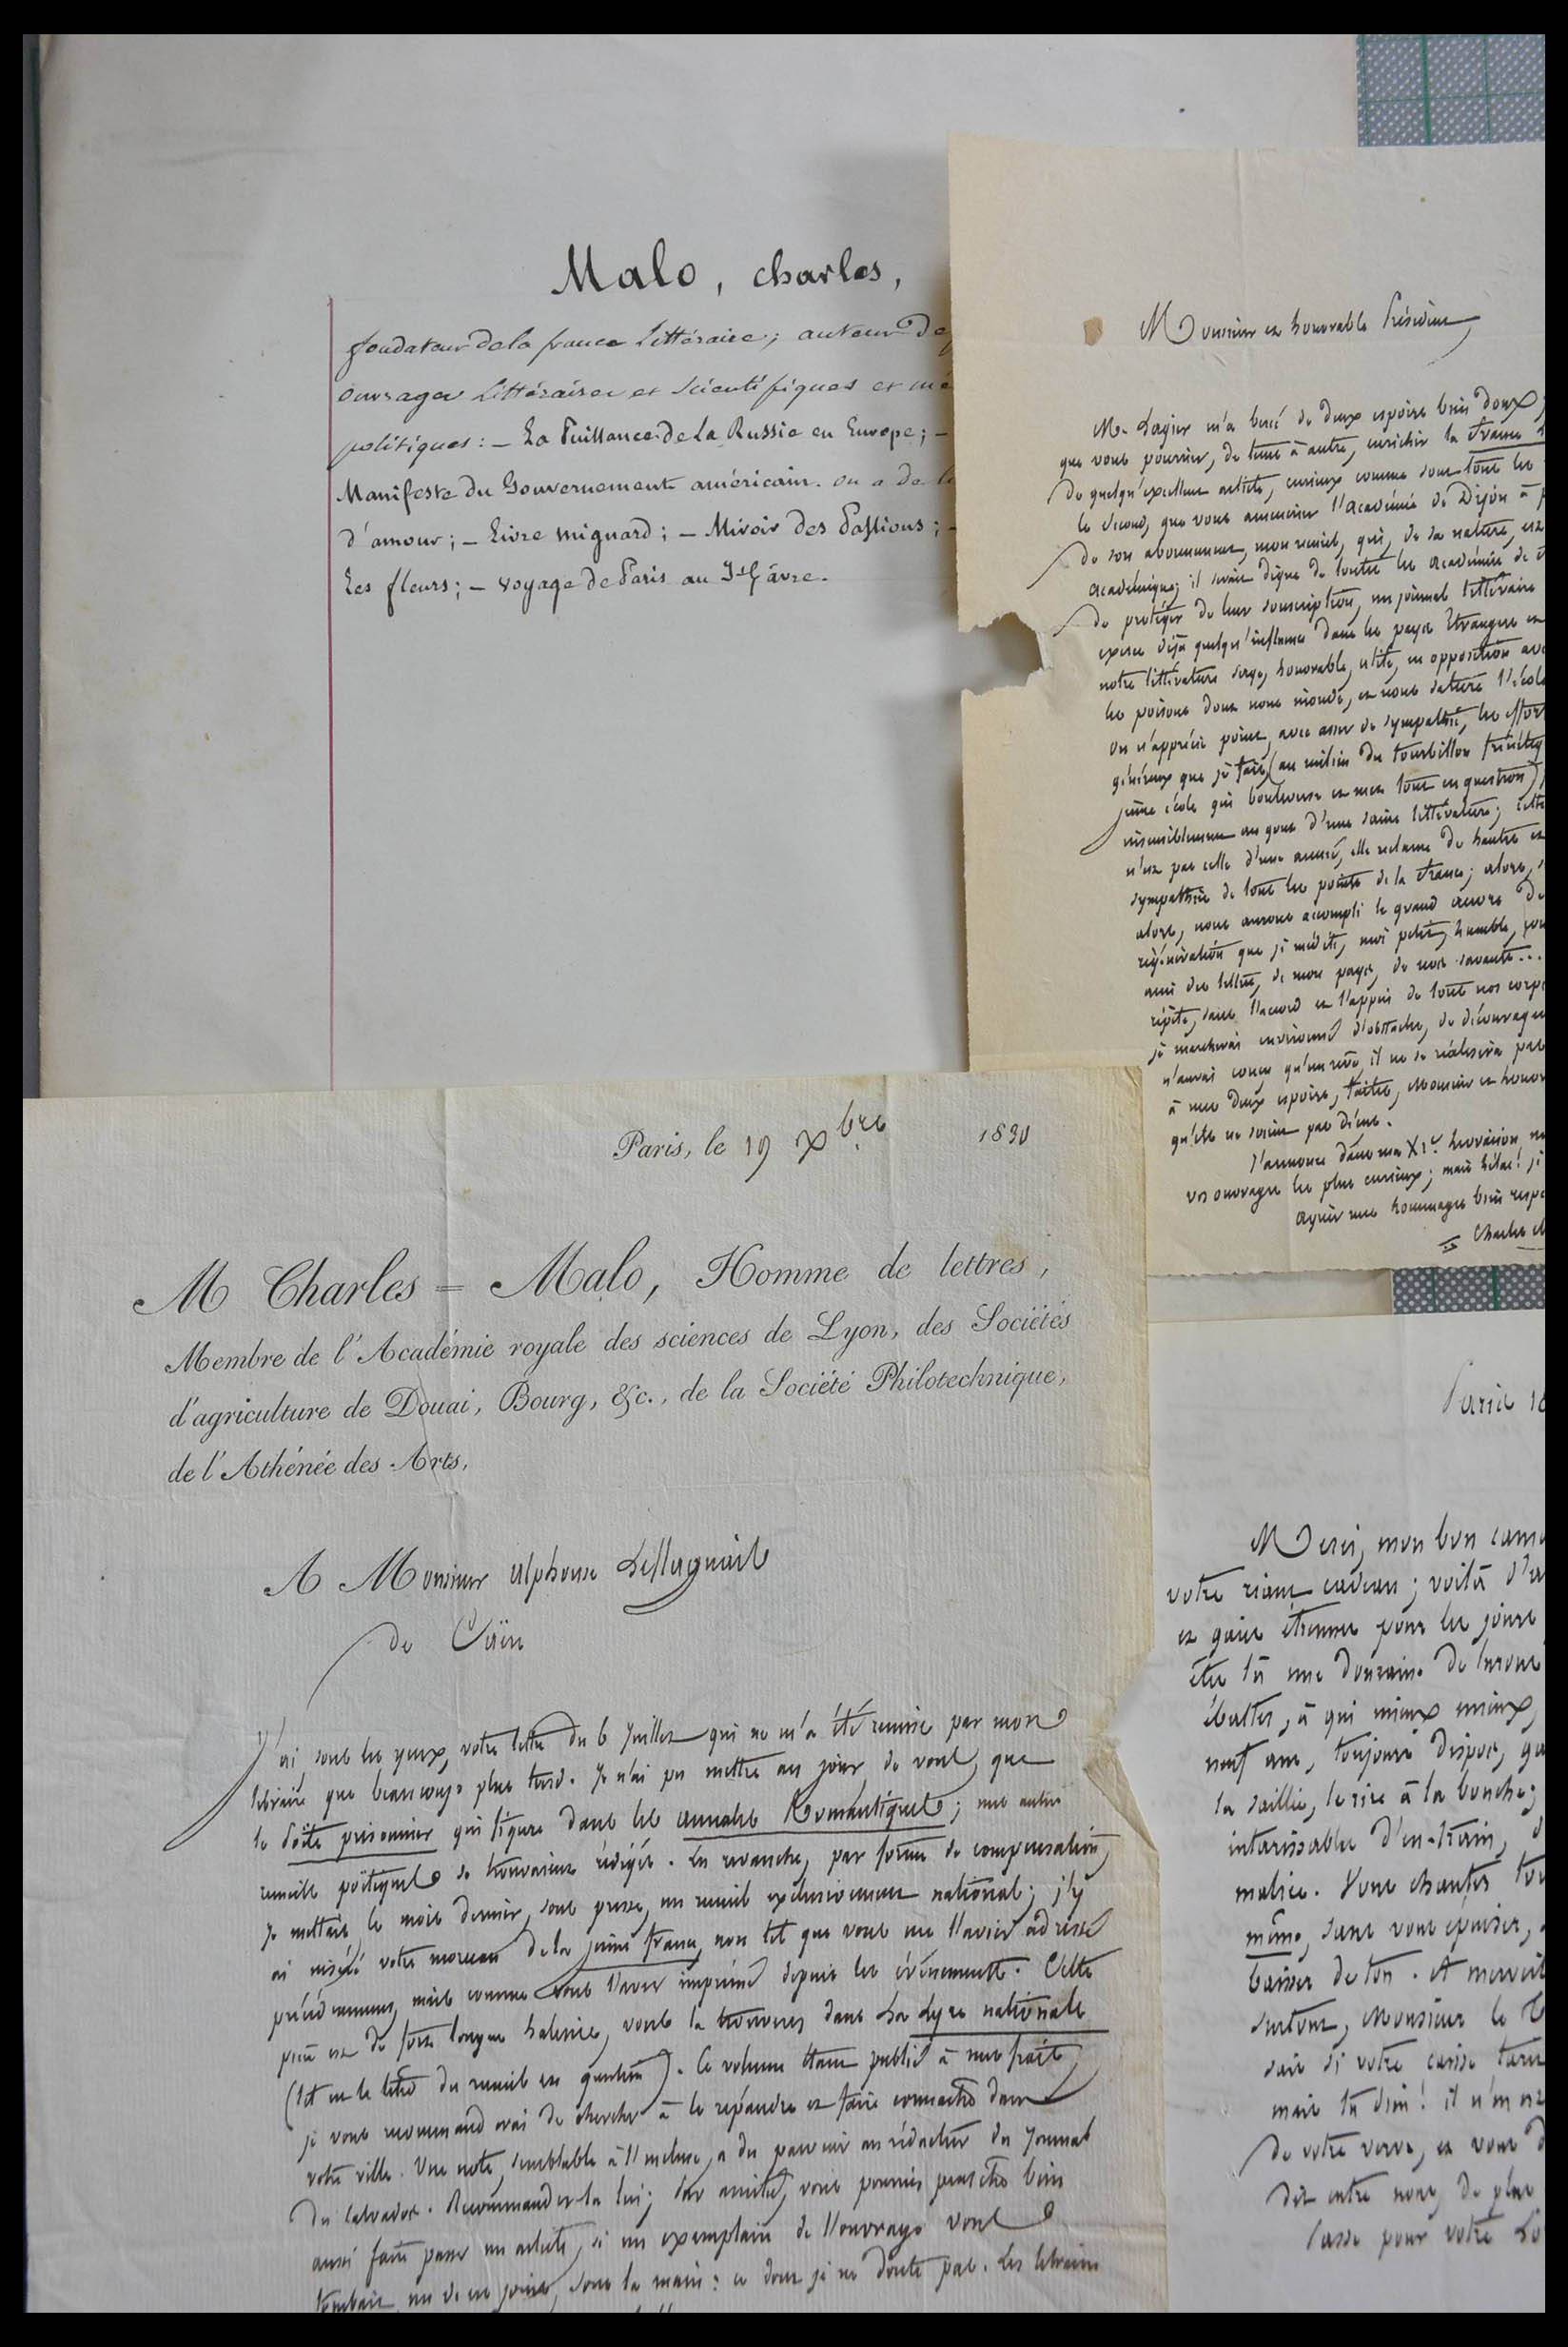 Malo, charles,
fondateur de la france littéraire; auteur de
ouvrages littéraires et scientifiques et
politiques: — La Puissance de la Russie en Europe; —
Manifeste du Gouvernement américain. on a de
d'amour; — Livre mignard; — Miroir des Passions; —
Les fleurs; — voyage de Paris au Hâvre.
Monsieur et honorable Président,
M. Lagier m'a bercé de deux espoirs bien doux;
que vous pourriez, de tems à autre, enrichir la France
de quelqu'excellent article, curieux comme sont tous les
le second, que vous amèneriez l'Académie de Dijon à
de son abonnement, mon recueil, qui, de sa nature, est
académique; il serait digne de toutes les Académies de
de protéger de leur souscription, un journal littéraire
exerce déjà quelqu'influence dans les pays étrangers et
notre littérature sage, honorable, utile, en opposition avec
les poisons dont nous inonde, et nous sature l'école
On n'apprécie point, avec assez de sympathie, les efforts
généreux que je fais (au milieu du tourbillon
jeune école qui bouleverse et met tout en question)
insensiblement au goût d'une saine littérature; cette
n'est pas celle d'une année, elle réclame de hautes et
sympathies de tous les points de la France; alors,
alors, nous aurons accompli le grand œuvre de
régénération que je médite, moi petit, humble,
ami des lettres, de mon pays, de nos savants...
répète, sans l'accord et l'appui de tous nos corps
je marcherai environné d'obstacles, de découragement
n'aurai conçu qu'un rêve, il ne se réalisera pas
à mes deux espoirs, faites, Monsieur et honorable
qu'ils ne soient pas déçus.
J'annonce dans ma XIe livraison,
vos ouvrages les plus curieux; mais hélas! je
Agréez mes hommages bien
Charles
Paris, le 19 Xbre 1830
M Charles = Malo, Homme de lettres,
Membre de l'Académie royale des sciences de Lyon, des Sociétés
d'agriculture de Douai, Bourg, &c., de la Société Philotechnique,
de l'Athénée des Arts,
A Monsieur Alphonse LeFlaguais
de Caën
J'ai, sous les yeux, votre lettre du 6 Juillet qui ne m'a été remise par mon
libraire que beaucoup plus tard. Je n'ai pu mettre au jour, de vous, que
le Poëte prisonnier qui figure dans les annales Romantiques; mes autres
recueils poëtiques se trouvaient rédigés. En revanche, par forme de compensation,
je mettais, le mois dernier, sous presse, un recueil exclusivement national; j'y
ai inséré votre morceau de la jeune france, non tel que vous me l'aviez adressé
précédemment, mais comme vous l'avez imprimé depuis les évènements. Cette
pièce est de fort longue haleine, vous la trouverez dans La Lyre nationale
(tel est le titre du recueil en question). Ce volume étant publié à mes frais,
je vous recommanderai de chercher à le répandre et faire connaître dans
votre ville. Une note, semblable à l'incluse, a du parvenir au rédacteur du Journal
du Calvados. Recommandez-la lui; par amitié, vous pourriez peut être bien
aussi faire passer un article, si un exemplaire de l'ouvrage vous
tombait, un de ces jours, sous la main: ce dont je ne doute pas. Les libraires
Paris 18
Merci, mon bon
votre riant cadeau; voilà
et gaies étrennes pour les jours
être là une douzaine de
ébattre, à qui mieux mieux,
neuf ans, toujours dispos,
la saillie, le rire à la bouche;
intarissable d'en-train,
malice. Vous chantez
même, sans vous épuiser,
baisser de ton. A merveille
surtout, Monsieur le
sais si votre caisse
mais
de votre verve, et vous
dit entre nous, de plus
casse pour votre